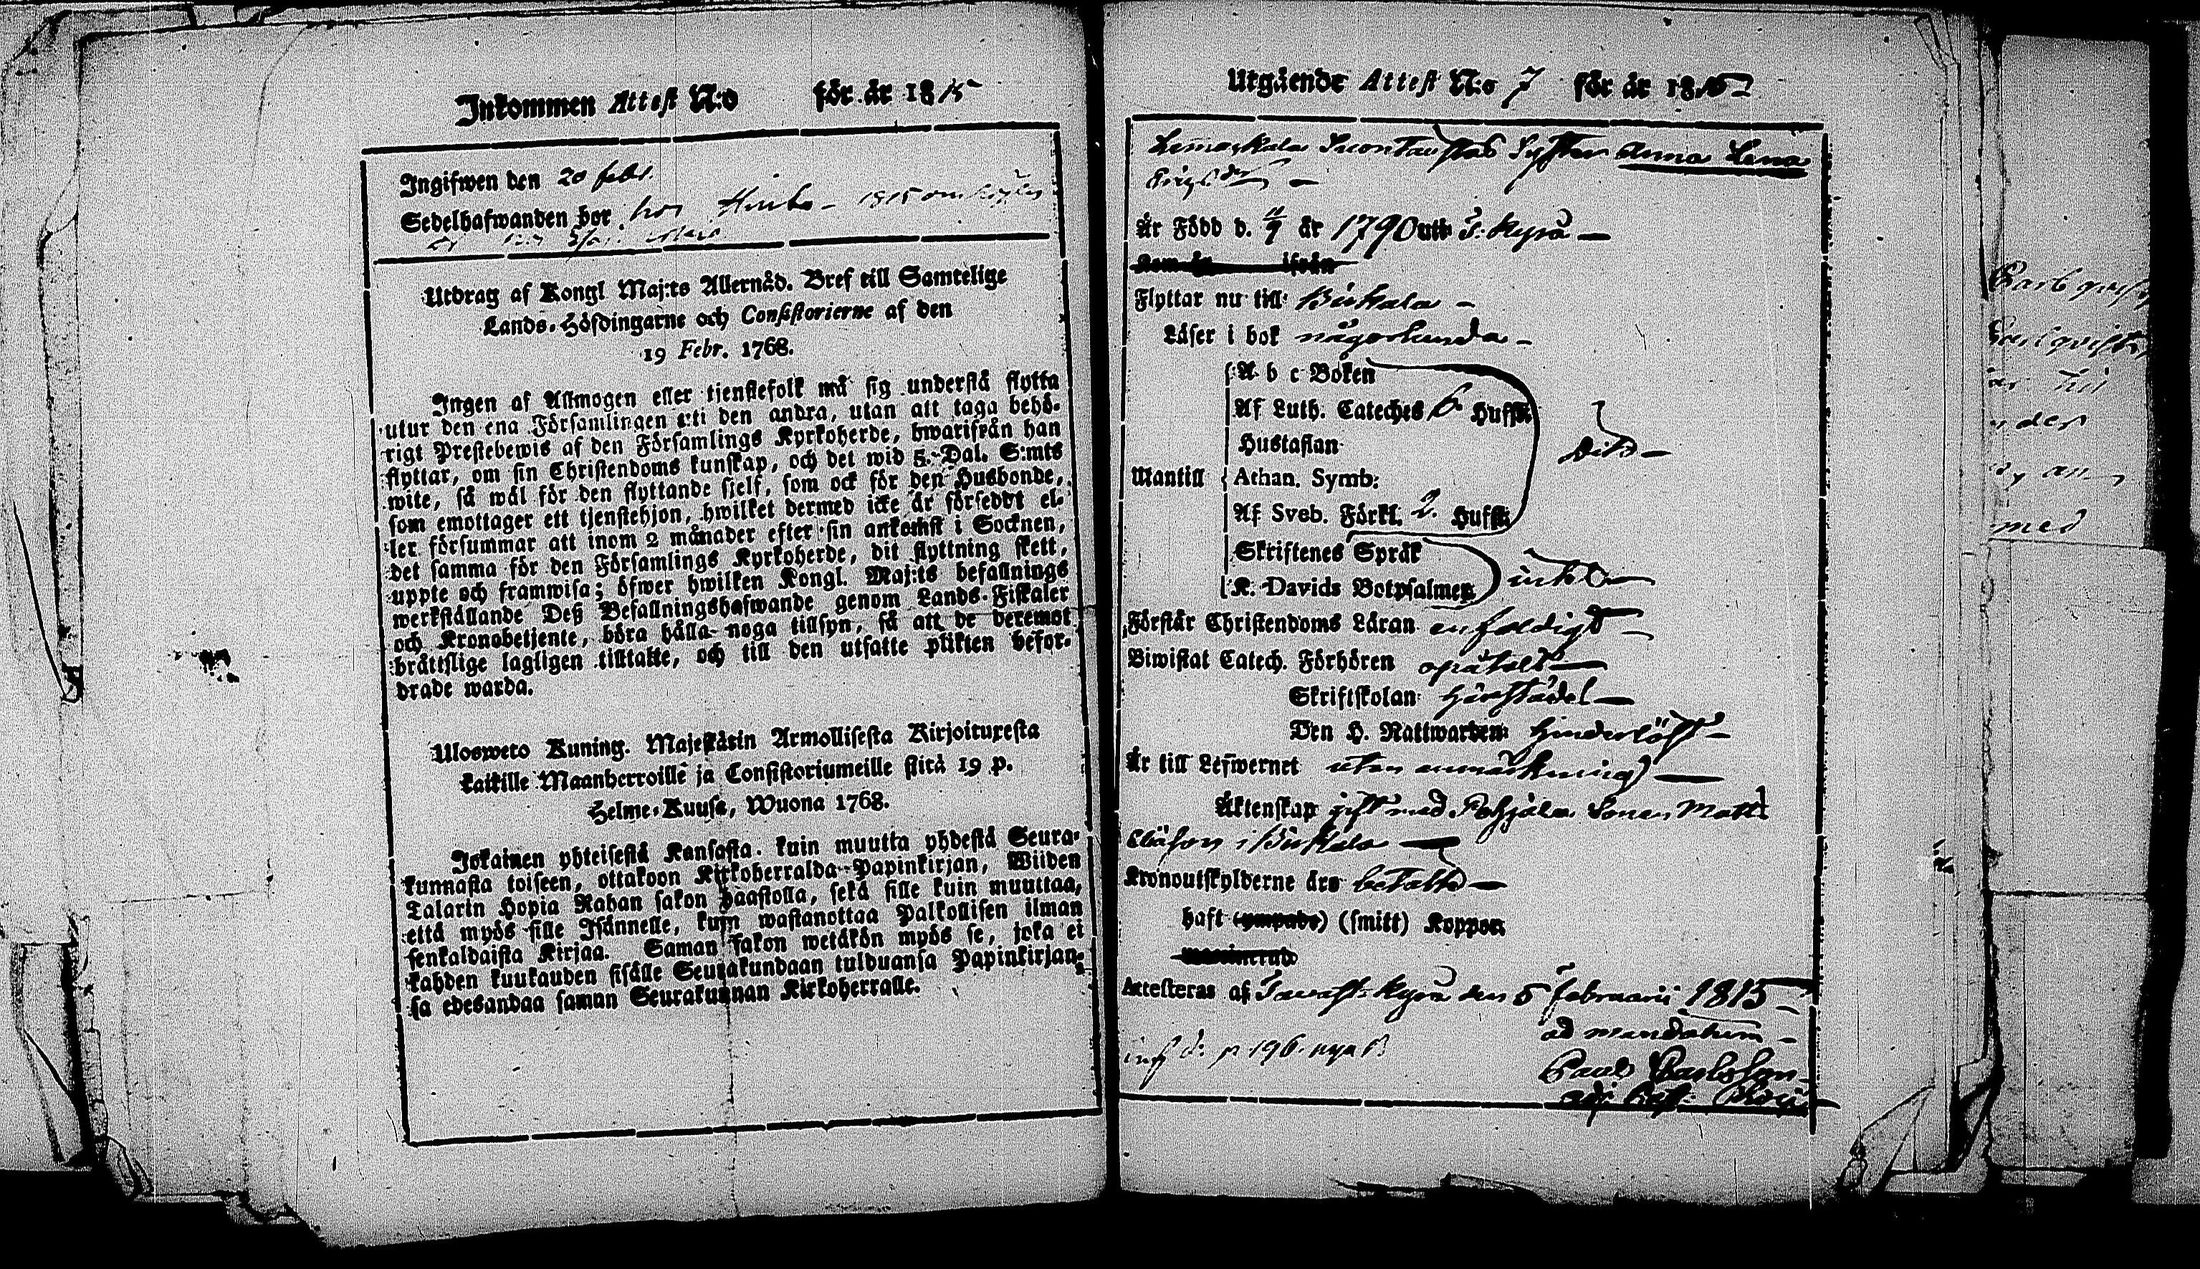 Inkommen Attest N:o för år 1815
Ingifwen den 20 febr.
Sedelhafwanden bor hos
Utdrag af Kongl Maj:ts Allernåd. Bref till Samtelige
Lands-Höfdingarne och Consistorierne af den
19 Febr. 1768.
Ingen af Allmogen eller tjenstefolk må sig understå flytta
utur den ena Församlingen uti den andra, utan att taga behö-
rigt Prestebewis af den Församlings Kyrkoherde, hwarifrån han
flyttar, om sin Christendoms kunskap, och det wid 5. Dal. S:mts
wite, så wäl för den flyttande sjelf, som ock för den Husbonde,
som emottager ett tjenstehjon, hwilket dermed icke är försedbt el-
ler försummar att inom 2 månader efter sin ankomst i Socknen,
det samma för den Församlings Kyrkoherde, dit flyttning skett,
uppte och framwisa; öfwer hwilken Kongl. Maj:ts befallnings
werkställande Deß Befallningshafwande genom Lands-Fiskaler
och Kronabetjente, böra hålla noga tillsyn, så att de deremot
brättslige lagligen tilltalte, och till den utsatte plikten befor-
drade warda.
Ulosweto Kuning. Majestäsin Armollisesta Kirjoituxesta
kaikille Maanherroille ja Consistoriumeille siitä 19 p.
Helme-Kuusa, Wuona 1768.
Jokainen yhteisestä Kansasta kuin muutta yhdestä Seura-
kunnasta toiseen, ottakoon Kirkoherralda Papinkirjan, Wiiden
Talarin Hopia Rahan sakon haastolla, sekä sille kuin muuttaa,
että myös sille Isännelle, kuin wastanottaa Palkollisen ilman
senkaldaista Kirjaa. Saman sakon wetäkön myös se, joka ei
kahden kuukauden sisälle Seurakundaan tulduansa Papinkirjan-
sa edesandaa saman Seurakunnan Kirkoherralle.
Utgående Attest N:o 7 för år 1815
Syster Anna Lena
Är Född d. 11/9 år 1790 uti T. Kyro
Kom år ifrån
Flyttar nu till Birkala
Läser i bok någorlunda
A b c Boken
Af Luth. Cateches 6 Hufst.
Hustaflan
dito
Mantill
Athan. Symb:
Af Sveb. Förkl. 2. Hufst.
Skriftenes Språk
K. Davids Botpsalmer
intet
Förstår Christendoms Läran enfaldigt
Biwistat Catech. Förhören
Skriftskolan
Den H. Nattwarden hinderlöst
Är till Lefwernet utan anmärkning
Äktenskap gift med Pohjala Sonen Matts
i Birkala
Kronoutskylderne äro betalte
haft (ympade) (smitt) Koppor
Attesteras af Tawast-Kyro den 5 februarii 1815
ad mandatum
Paul
p 196